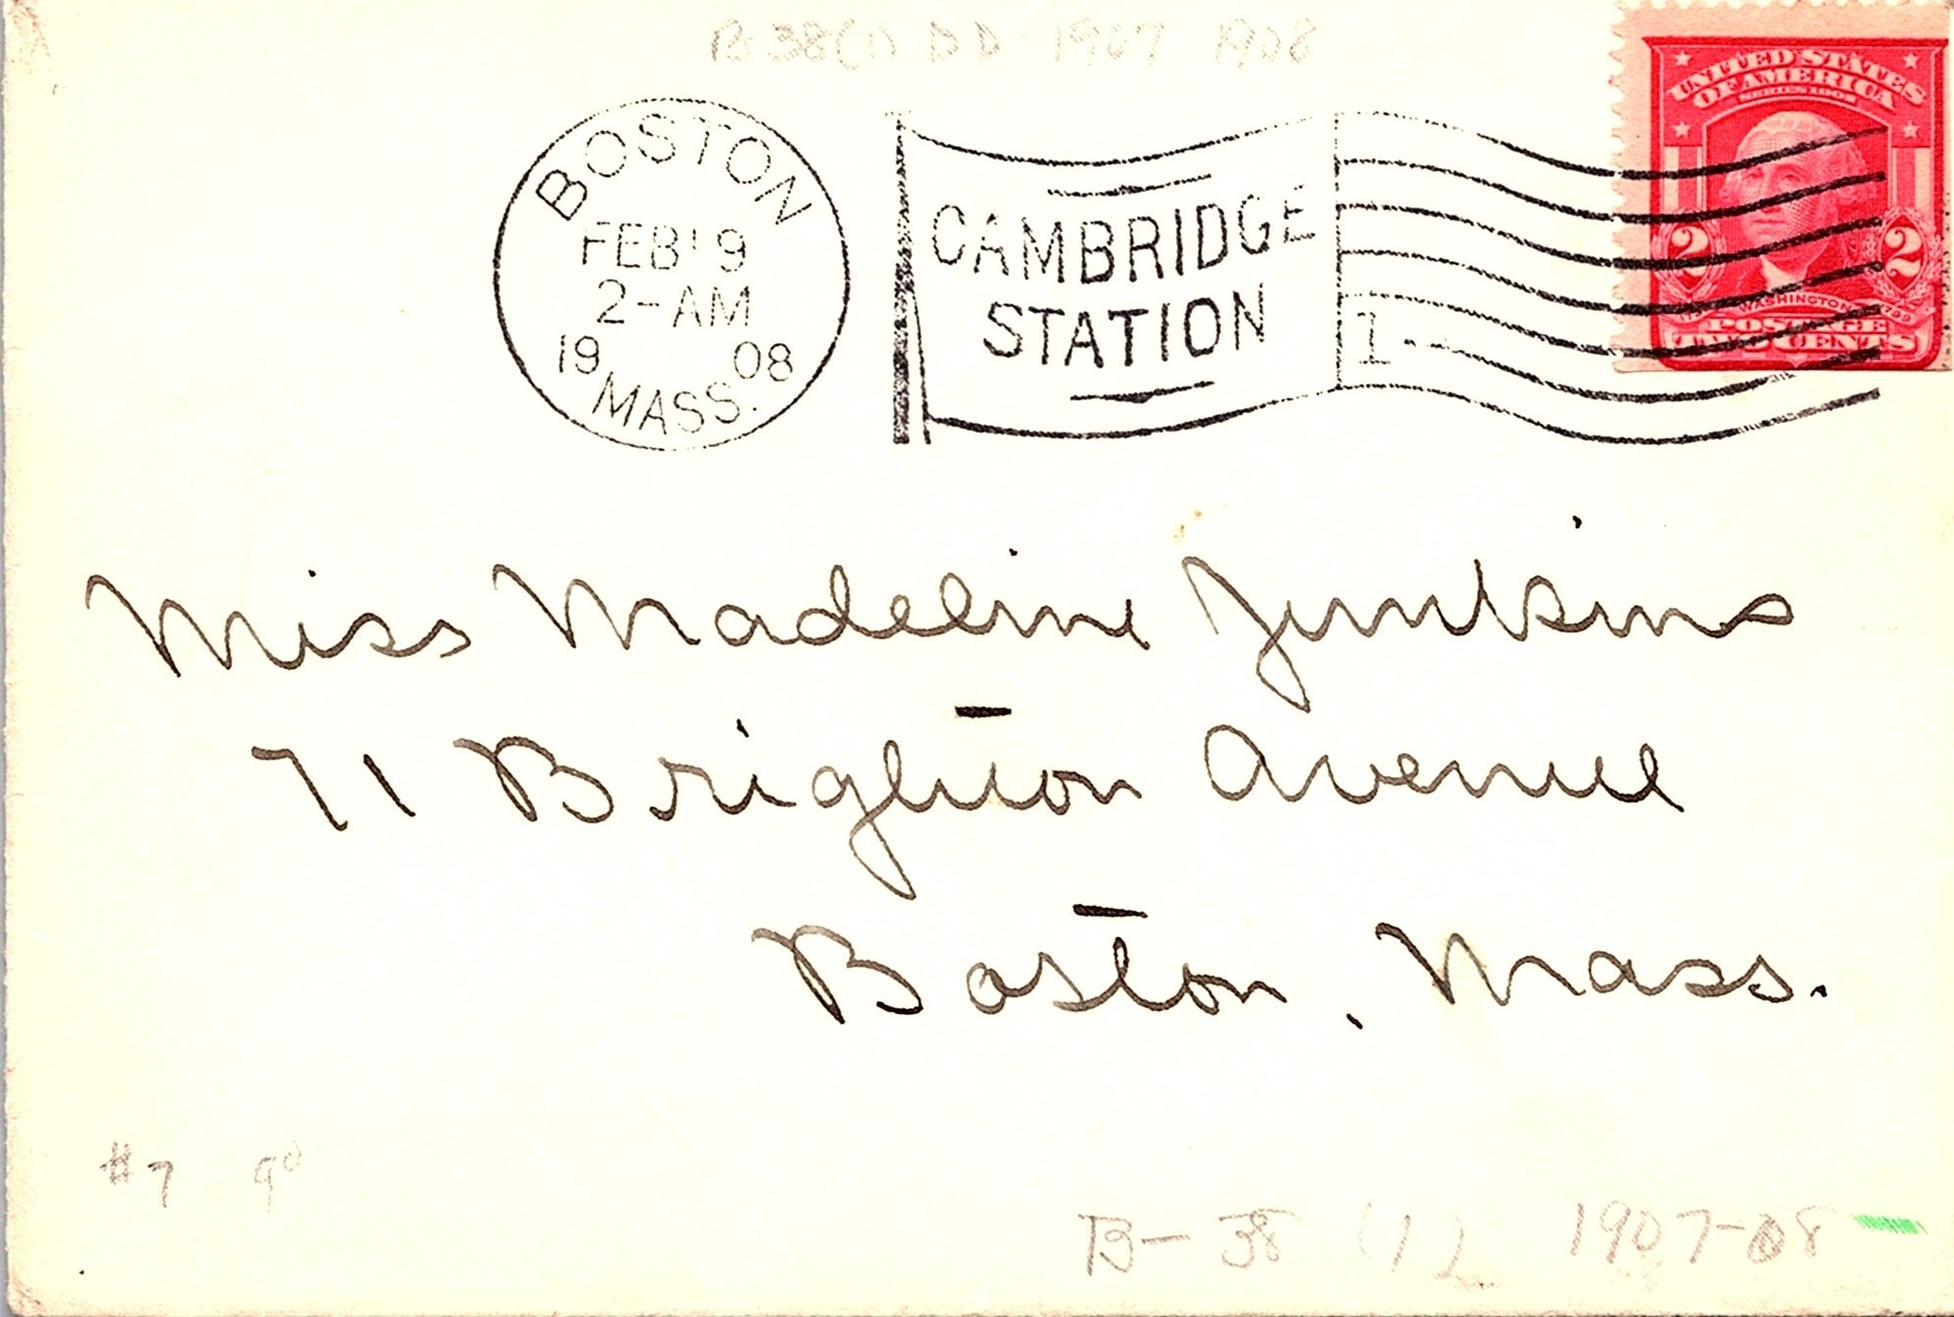 B-38(1) DD 1907 1908
BOSTON
FEB 19
2-AM
19 08
MASS.
CAMBRIDGE
STATION
1
UNITED STATES
OF AMERICA
SERIES 1902
2 2
WASHINGTON
POSTAGE
TWO CENTS
Miss Madeline Jenkins
71 Brighton Avenue
Boston, Mass.
#7
B-38 (1) 1907-08